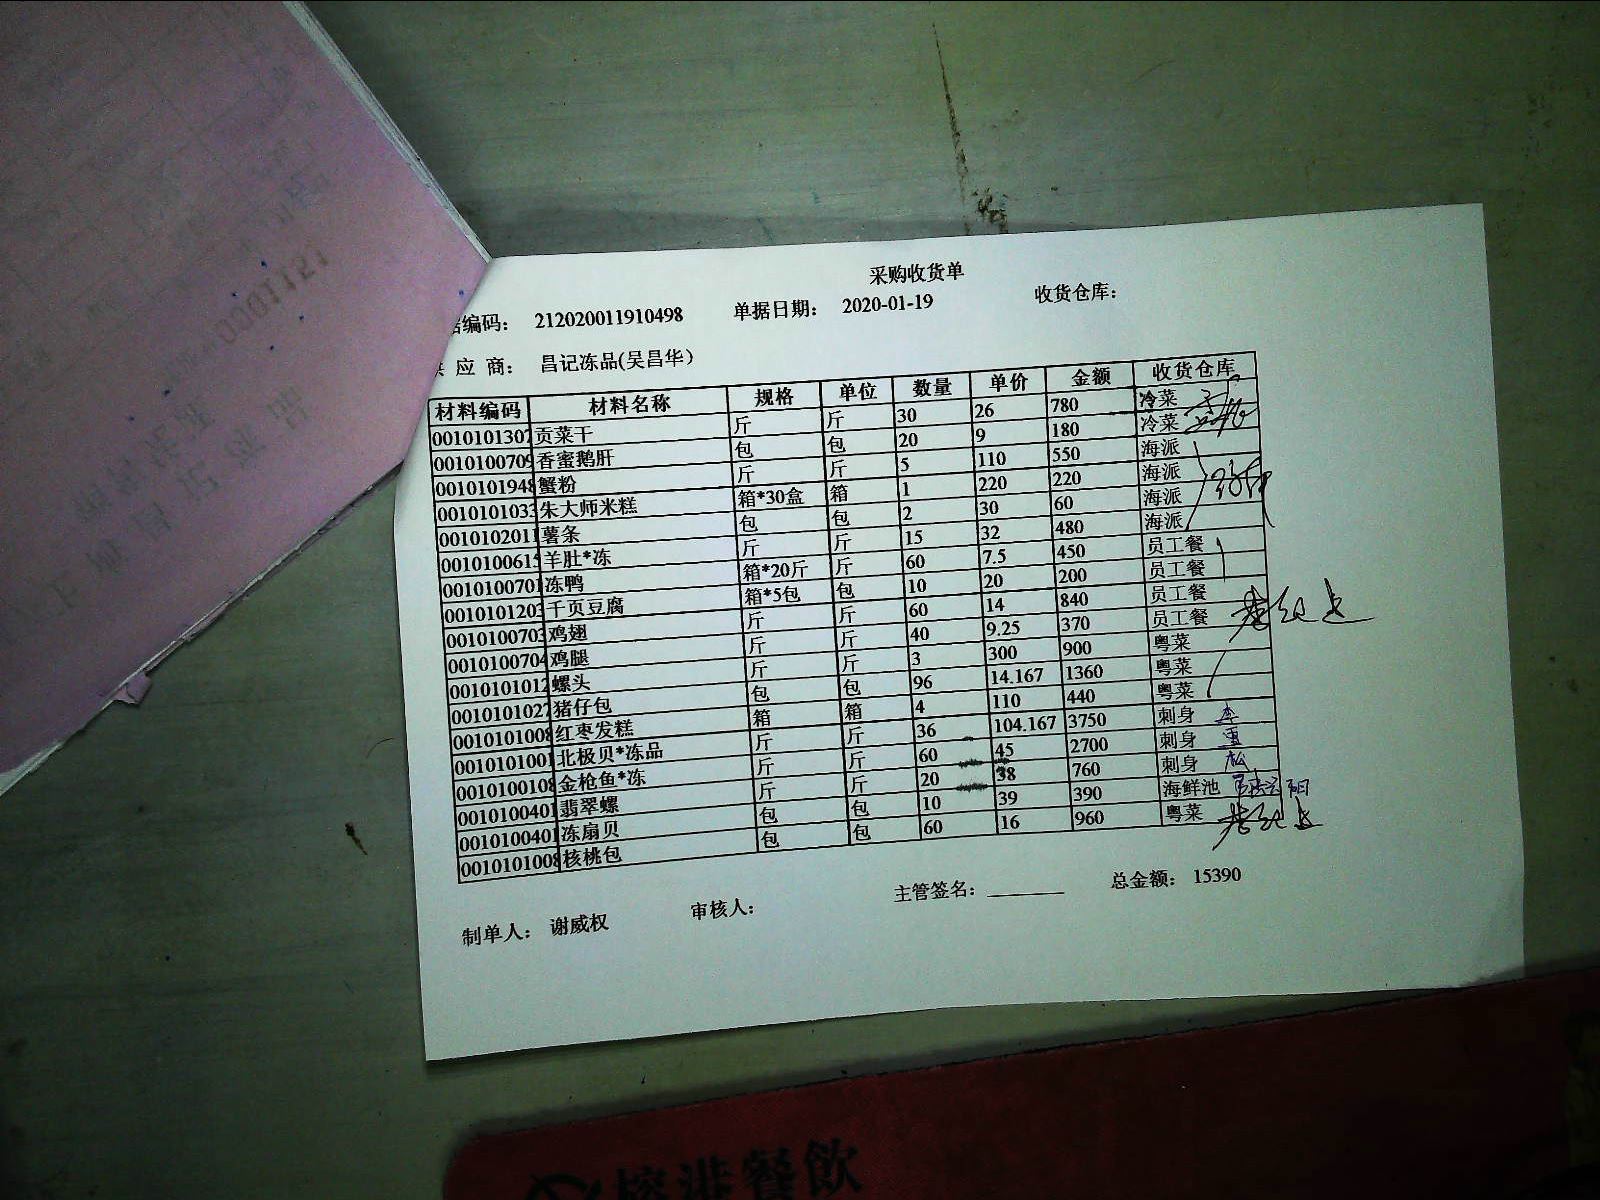 采购收货单
据编码： 212020011910498 单据日期： 2020-01-19 收货仓库：
供 应 商： 昌记冻品(吴昌华)
材料编码 材料名称 规格 单位 数量 单价 金额 收货仓库
0010101307 贡菜干 斤 斤 30 26 780 冷菜
0010100709 香蜜鹅肝 包 包 20 9 180 冷菜
0010101948 蟹粉 斤 斤 5 110 550 海派
0010101033 朱大师米糕 箱*30盒 箱 1 220 220 海派
0010102011 薯条 包 包 2 30 60 海派
0010100615 羊肚*冻 斤 斤 15 32 480 海派
0010100701 冻鸭 箱*20斤 斤 60 7.5 450 员工餐
0010101203 千页豆腐 箱*5包 包 10 20 200 员工餐
0010100703 鸡翅 斤 斤 60 14 840 员工餐
0010100704 鸡腿 斤 斤 40 9.25 370 员工餐
0010101012 螺头 斤 斤 3 300 900 粤菜
0010101027 猪仔包 包 包 96 14.167 1360 粤菜
0010101008 红枣发糕 箱 箱 4 110 440 粤菜
0010101001 北极贝*冻品 斤 斤 36 104.167 3750 刺身
0010100108 金枪鱼*冻 斤 斤 60 45 2700 刺身
0010100401 翡翠螺 斤 斤 20 38 760 刺身
0010100401 冻扇贝 包 包 10 39 390 海鲜池
0010101008 核桃包 包 包 60 16 960 粤菜
制单人： 谢威权 审核人： 主管签名： 总金额： 15390
餐飲